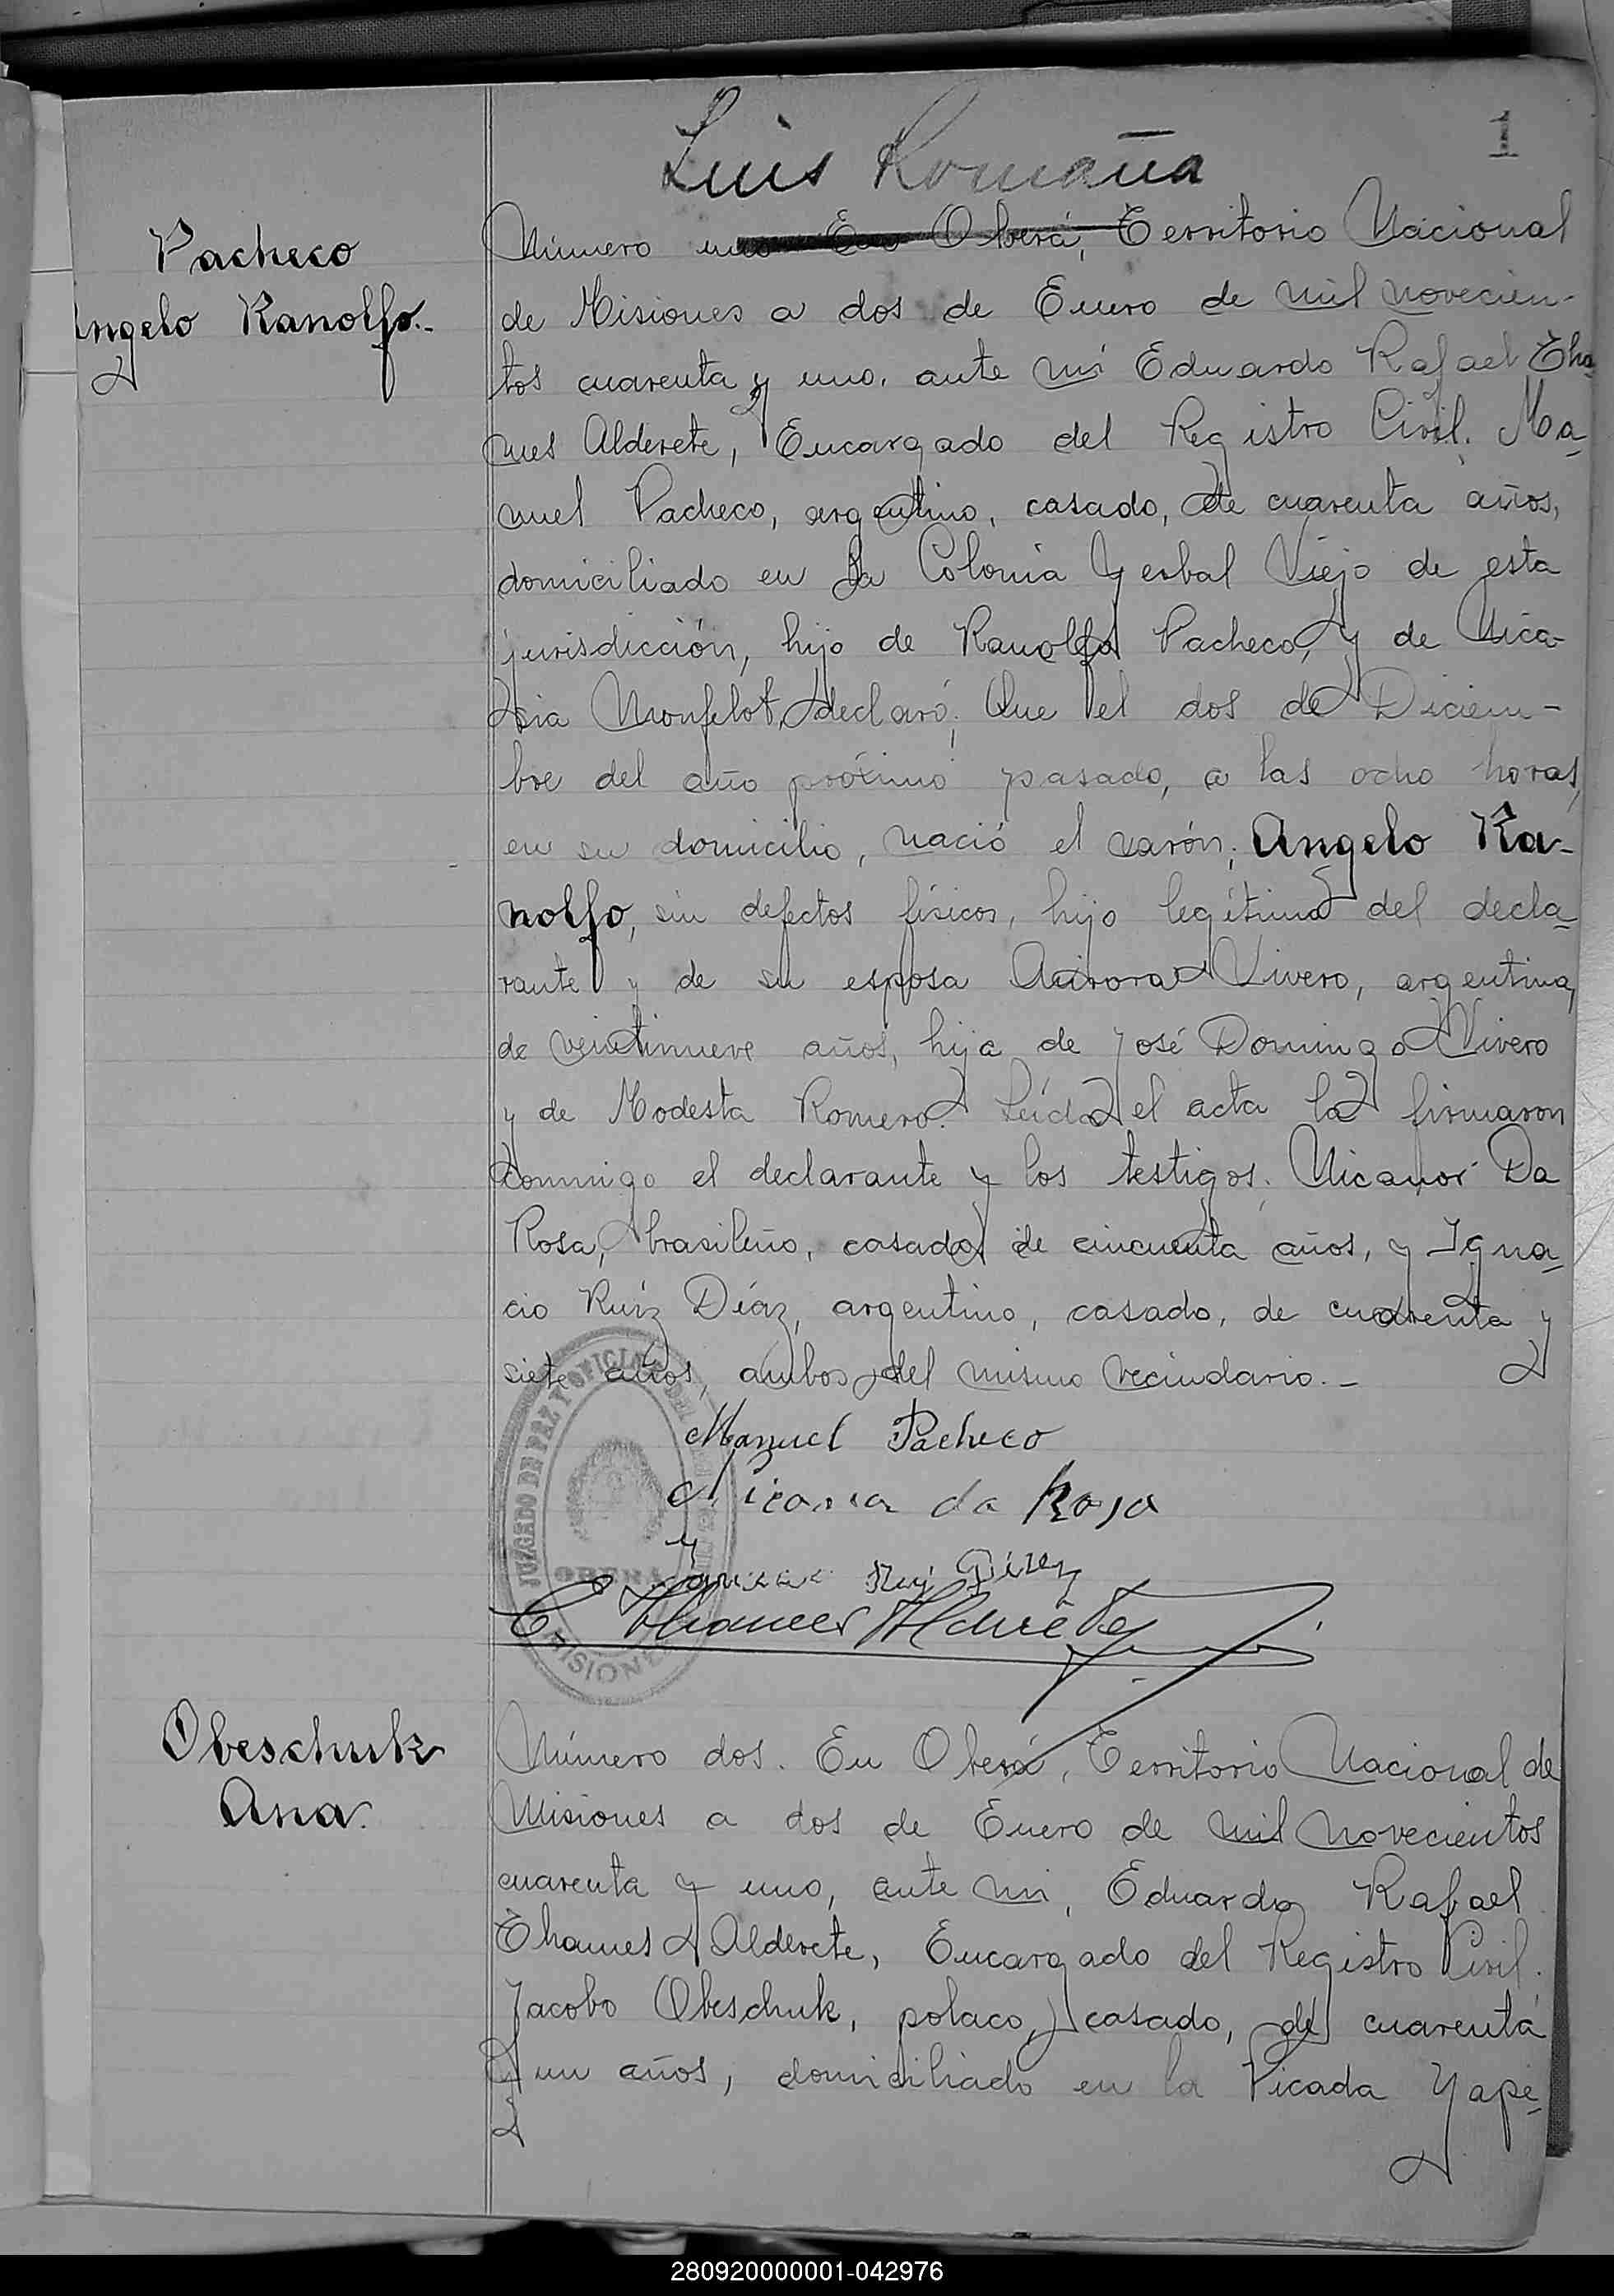 Luis Romaña
1
Pacheco
Angelo Ranolfo.-
Número uno En Oberá, Territorio Nacional
de Misiones a dos de Enero de mil novecien-
tos cuarenta y uno, ante mí Eduardo Rafael Tha-
mes Alderete, Encargado del Registro Civil. Ma-
nuel Pacheco, argentino, casado, de cuarenta años,
domiciliado en la Colonia Yerbal Viejo de esta
jurisdicción, hijo de Ranolfo Pacheco, y de Nica-
sia Monfelot, declaró: Que el dos de Diciem-
bre del año próximo pasado, a las ocho horas,
en su domicilio, nació el varón; Angelo Ra-
nolfo, sin defectos físicos, hijo legítimo del decla-
rante y de su esposa Aurora Vivero, argentina,
de veintinueve años, hija de José Domingo Vivero
y de Modesta Romero. Leída el acta la firmaron
conmigo el declarante y los testigos: Nicanor Da
Rosa, brasileño, casado, de cincuenta años, y Igna-
cio Ruíz Díaz, argentino, casado, de cuarenta y
siete años, ambos del mismo vecindario.-
Manuel Pacheco
Nicanor da Rosa
Ruiz Diaz
E Thames Alderete
JUZGADO DE PAZ Y OFICINA DEL
OBERÁ
MISIONES
Obeschuk
Ana.
Número dos. En Oberá, Territorio Nacional de
Misiones a dos de Enero de mil novecientos
cuarenta y uno, ante mi, Eduardo Rafael
Thames Alderete, Encargado del Registro Civil.
Jacobo Obeschuk, polaco, casado, de cuarenta
y un años, domiciliado en la Picada Yape-
280920000001-042976